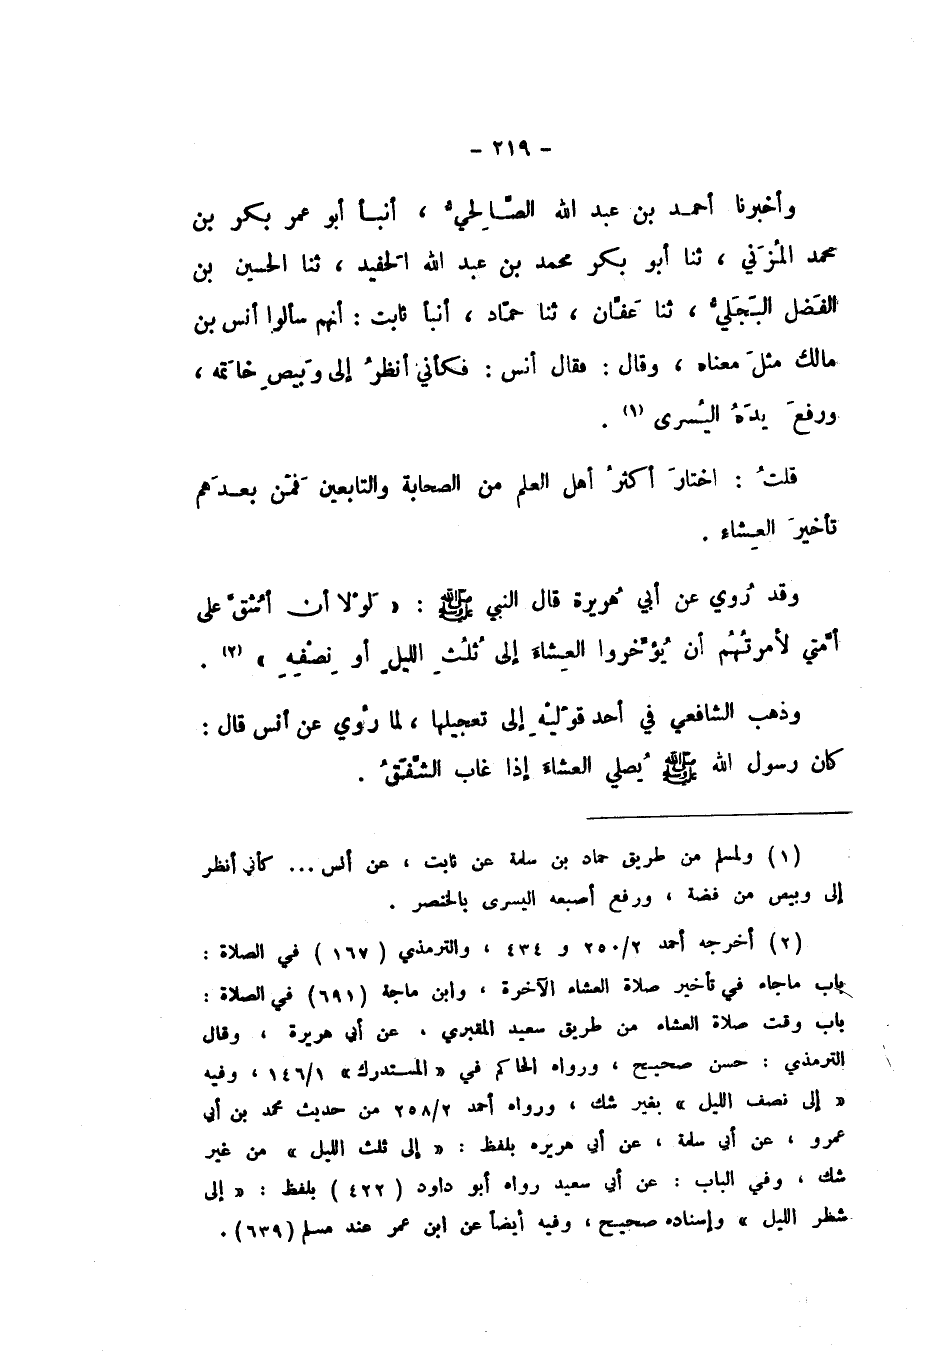 - ٢١٩ -
وأخبرنا أحمد بن عبد الله الصَّالِحيُّ ، أنبأ أبو عمر بكر بن
محمد المُزَني ، ثنا أبو بكر محمد بن عبد الله الحَفيد ، ثنا الحسين بن
الفَضل البَجَليُّ ، ثنا عَفَّان ، ثنا حمّاد ، أنبأ ثابت : أنهم سألوا أنس بن
مالك مثلَ معناه ، وقال : فقال أنس : فكأني أنظرُ إلى وَبيصِ خاتَمه ،
ورفعَ يدَهُ اليُسرى (١) .
قلتُ : اختارَ أكثرُ أهل العلم من الصحابة والتابعين فَمَن بعدَهم
تأخيرَ العِشاء .
وقد رُوي عن أبي هُريرة قال النبي ﷺ : « لَوْلا أن أشُقَّ على
أمَّتي لأمرتُهُم أن يُؤخِّروا العِشاءَ إلى ثُلُثِ الليلِ أو نِصْفِهِ » (٢) .
وذهب الشافعي في أحد قوْلَيْهِ إلى تعجيلها ، لما رُوي عن أنس قال :
كان رسول الله ﷺ يُصلي العشاءَ إذا غاب الشَّفَقُ .
(١) ولمسلم من طريق حماد بن سلمة عن ثابت ، عن أنس ... كأني أنظر
إلى وبيص من فضة ، ورفع أصبعه اليسرى بالخنصر .
(٢) أخرجه أحمد ٢/٢٥٠ و ٤٣٤ ، والترمذي ( ١٦٧ ) في الصلاة :
باب ماجاء في تأخير صلاة العشاء الآخرة ، وابن ماجة (٦٩١) في الصلاة :
باب وقت صلاة العشاء من طريق سعيد المقبري ، عن أبي هريرة ، وقال
الترمذي : حسن صحيح ، ورواه الحاكم في « المستدرك » ١٤٦/١ ، وفيه
« إلى نصف الليل » بغير شك ، ورواه أحمد ٢٥٨/٢ من حديث محمد بن أبي
عمرو ، عن أبي سلمة ، عن أبي هريره بلفظ : « إلى ثلث الليل » من غير
شك ، وفي الباب : عن أبي سعيد رواه أبو داود ( ٤٢٢ ) بلفظ : « إلى
شطر الليل » وإسناده صحيح ، وفيه أيضاً عن ابن عمر عند مسلم (٦٣٩) .